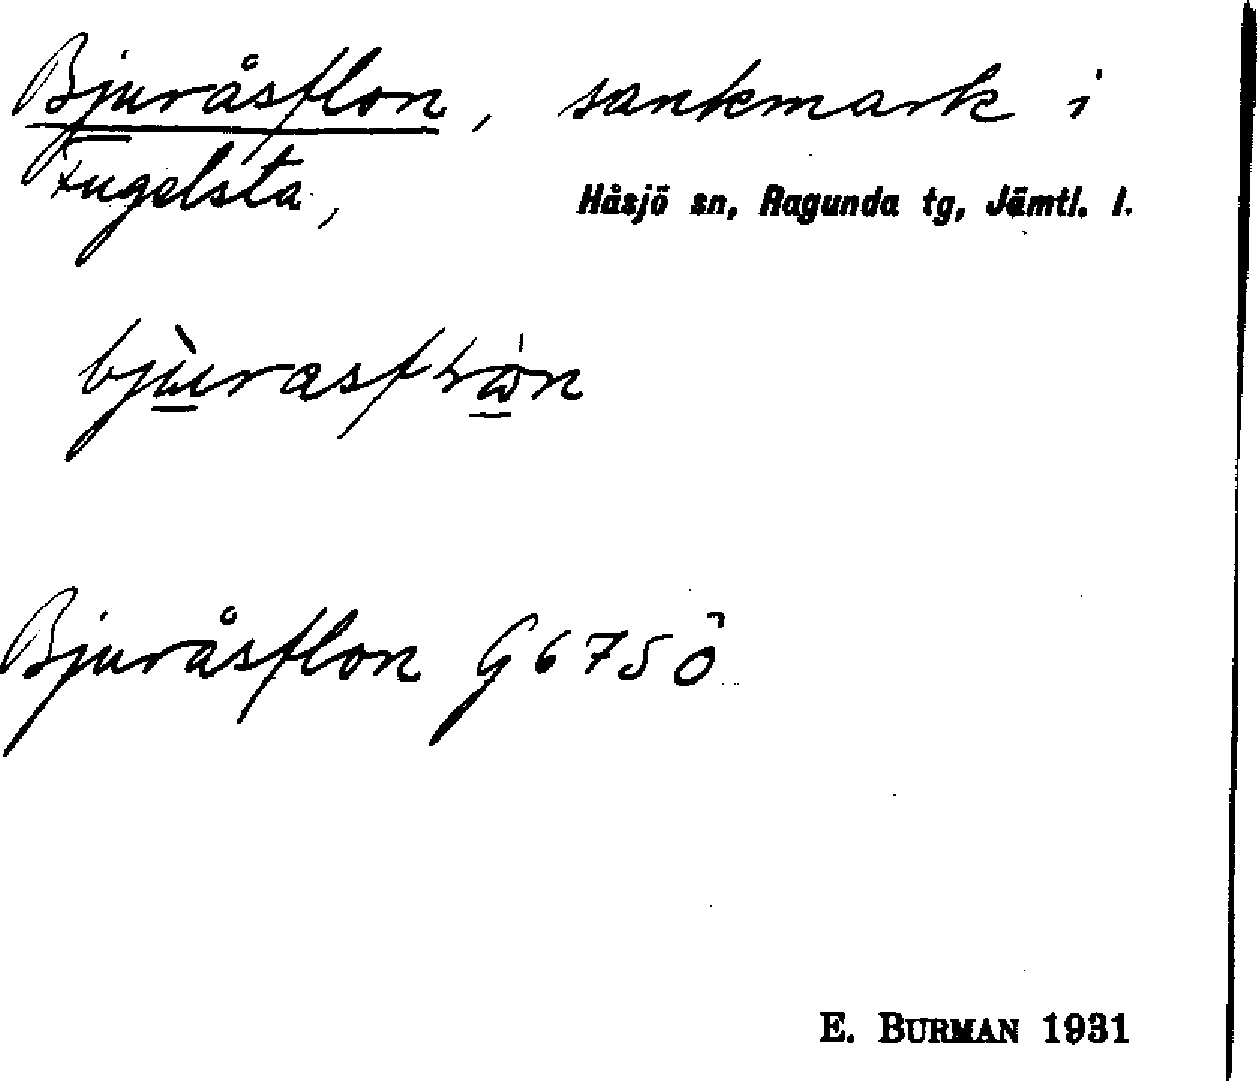 Bjuråsflon, sankmark i
Fugelsta, Håsjö sn, Ragunda tg, Jämtl. l.
Bjuråsflon G675Ö
E. BURMAN 1931